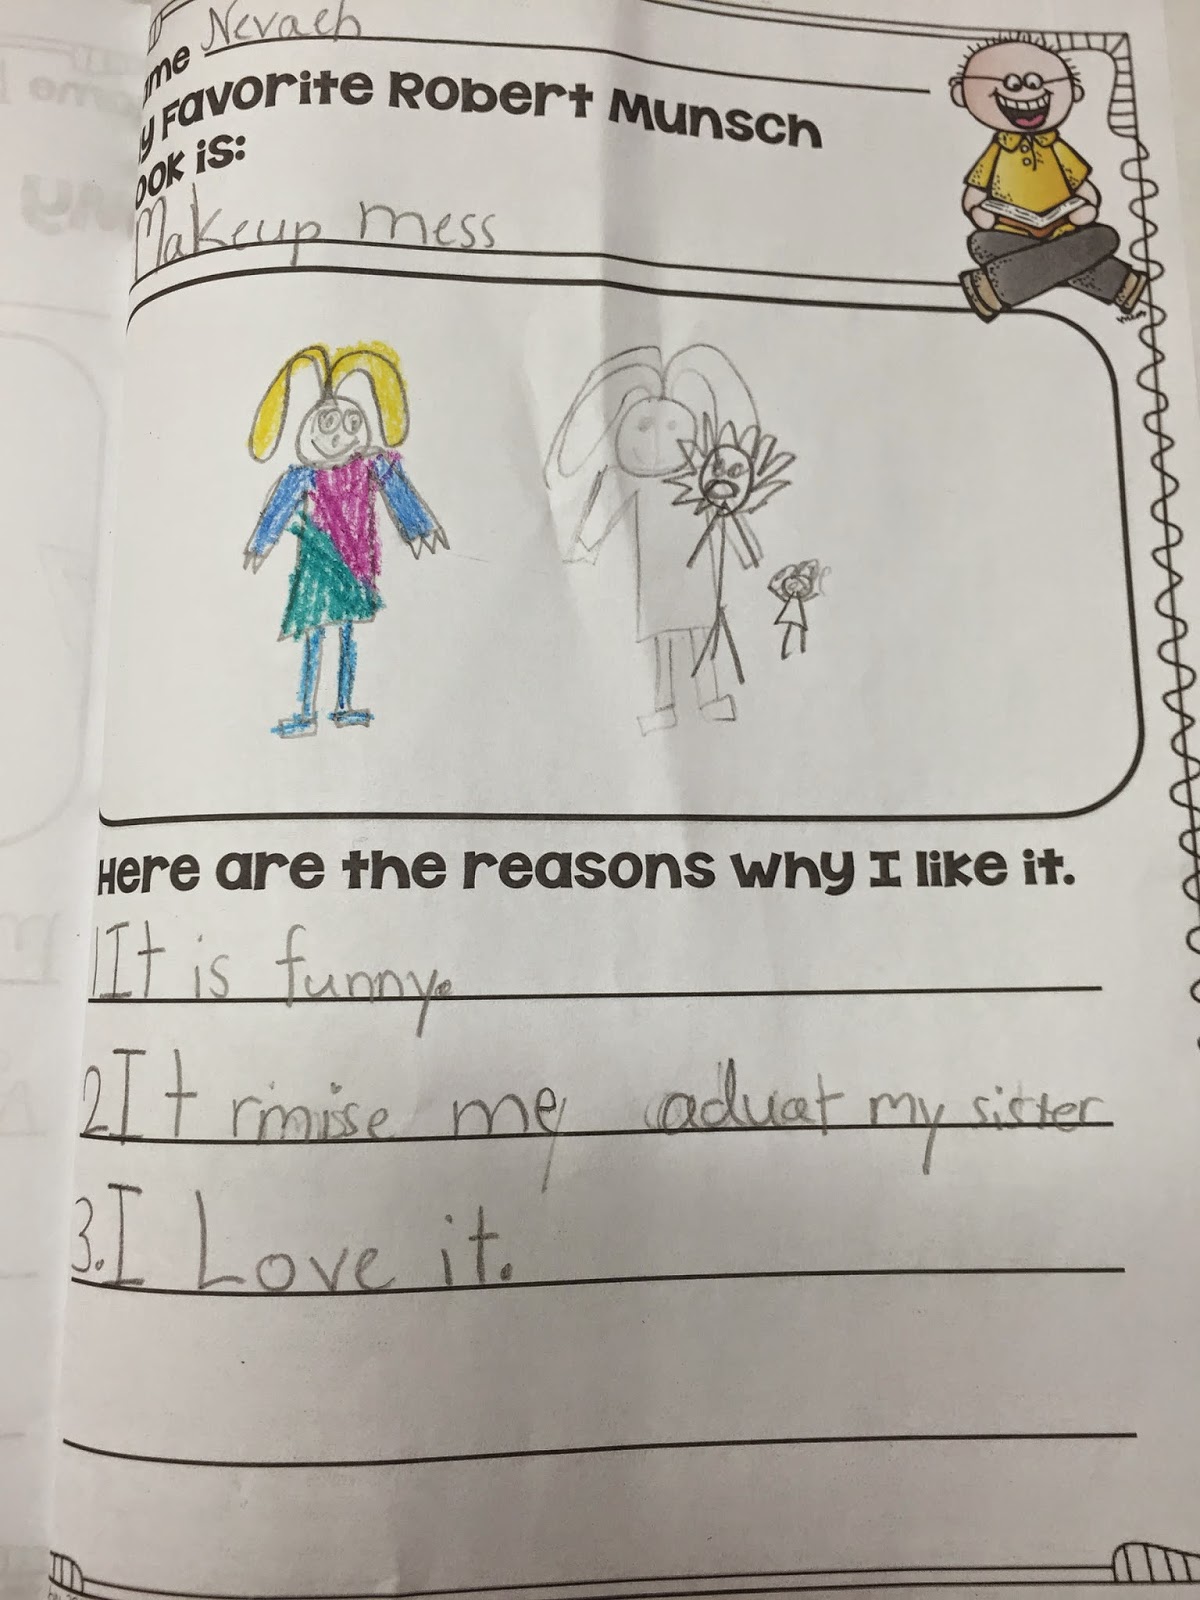 ame Nevaeh
y Favorite Robert Munsch
ook is:
Makeup mess
Here are the reasons why I like it.
1 It is funny.
2 It rimisse me aduat my sister
3. I Love it.